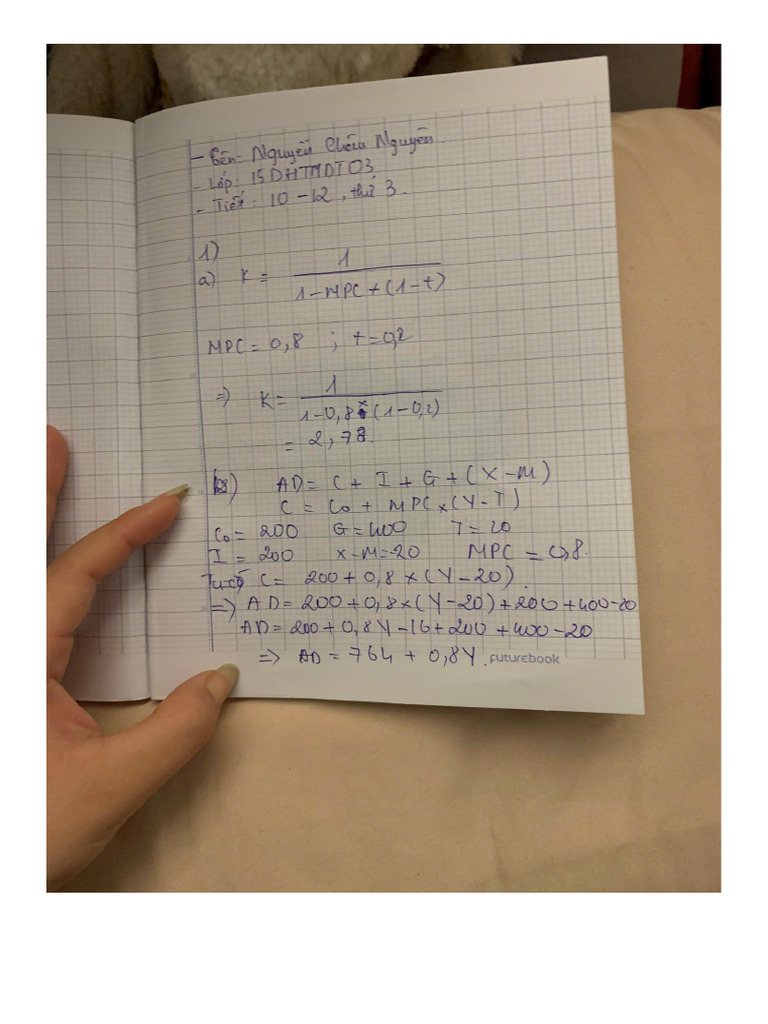 - Tên: Nguyễn Châu Nguyên.
- Lớp: 15DHTMDT03
- Tiết: 10-12, thứ 3.
1)
a) K = 1 / 1-MPC+(1-t)
MPC = 0,8 ; t = 0,2
=> K = 1 / 1-0,8×(1-0,2)
= 2,78.
b) AD = C + I + G + (X-M)
C = Co + MPC × (Y-T)
Co = 200 G = 400 T = 20
I = 200 X-M = -20 MPC = 0,8.
Ta có C = 200 + 0,8 × (Y-20).
=> AD = 200 + 0,8 × (Y-20) + 200 + 400-20
AD = 200 + 0,8Y - 16 + 200 + 400 - 20
=> AD = 764 + 0,8Y. Futurebook